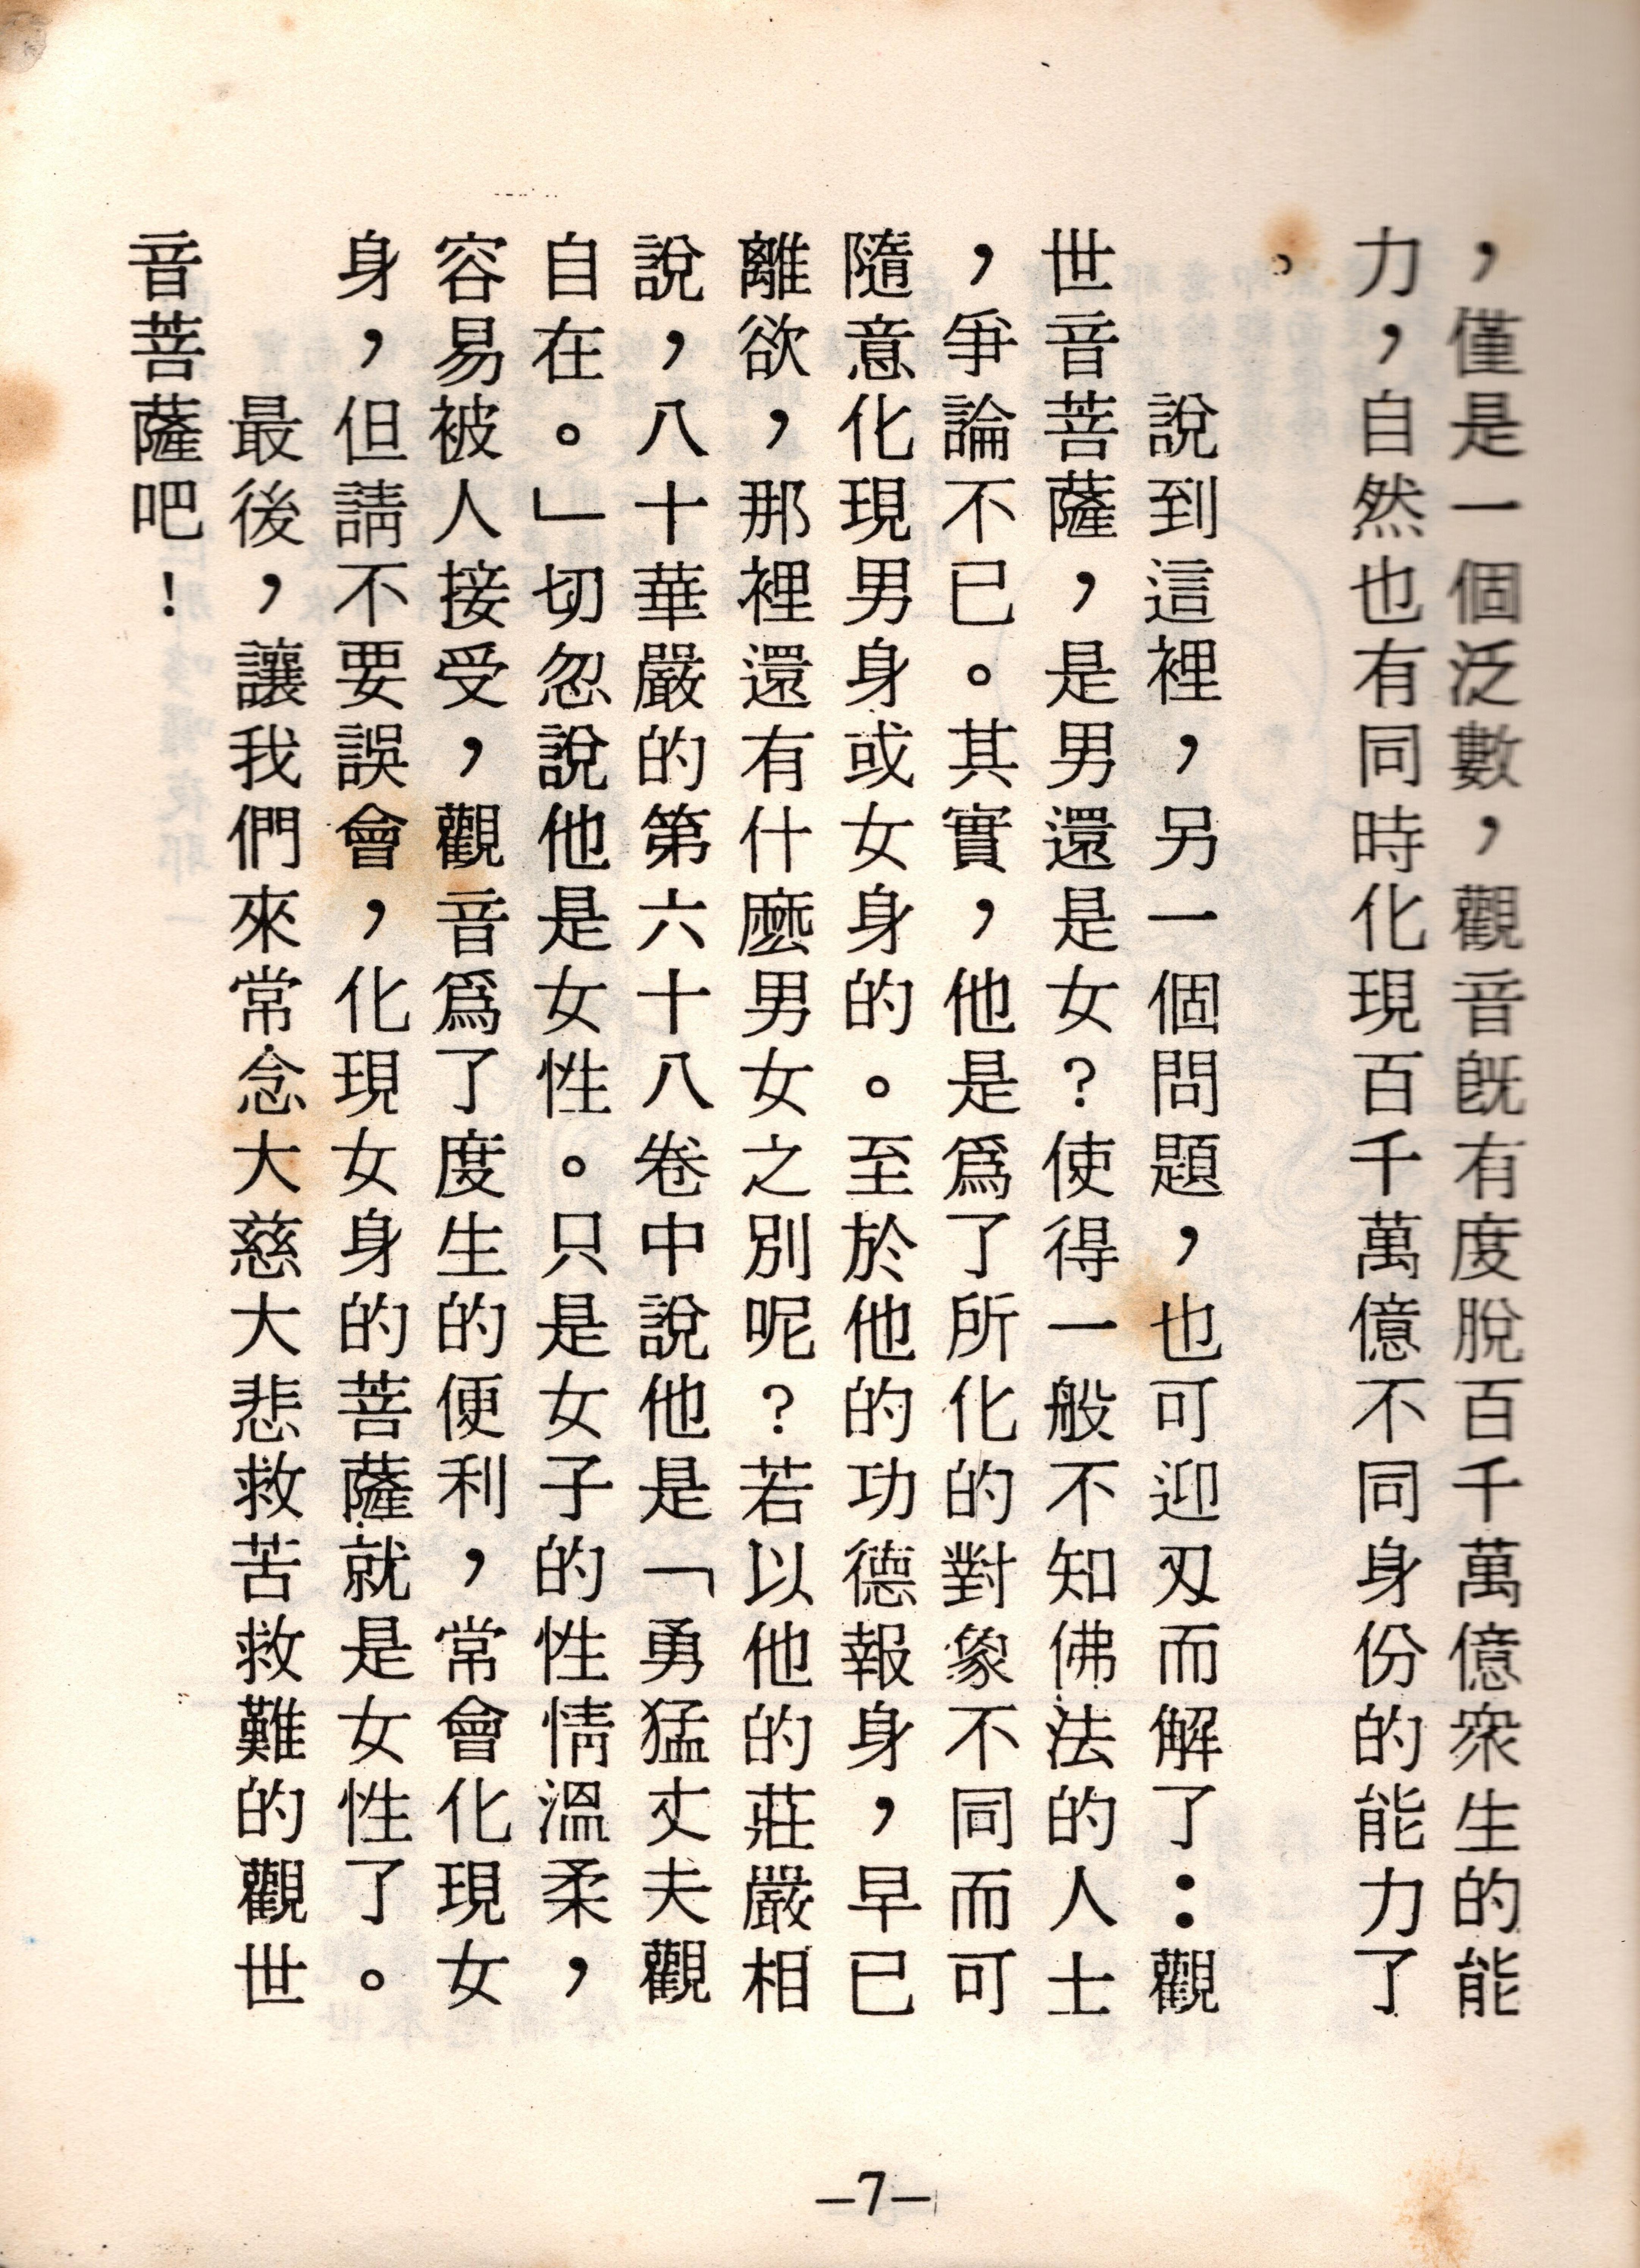 ，僅是一個泛數，觀音既有度脫百千萬億衆生的能
力，自然也有同時化現百千萬億不同身份的能力了
。
說到這裡，另一個問題，也可迎刄而解了：觀
世音菩薩，是男還是女？使得一般不知佛法的人士
，爭論不已。其實，他是爲了所化的對象不同而可
隨意化現男身或女身的。至於他的功德報身，早已
離欲，那裡還有什麼男女之別呢？若以他的莊嚴相
說，八十華嚴的第六十八卷中說他是「勇猛丈夫觀
自在。」切忽說他是女性。只是女子的性情溫柔，
容易被人接受，觀音爲了度生的便利，常會化現女
身，但請不要誤會，化現女身的菩薩就是女性了。
最後，讓我們來常念大慈大悲救苦救難的觀世
音菩薩吧！
—7—